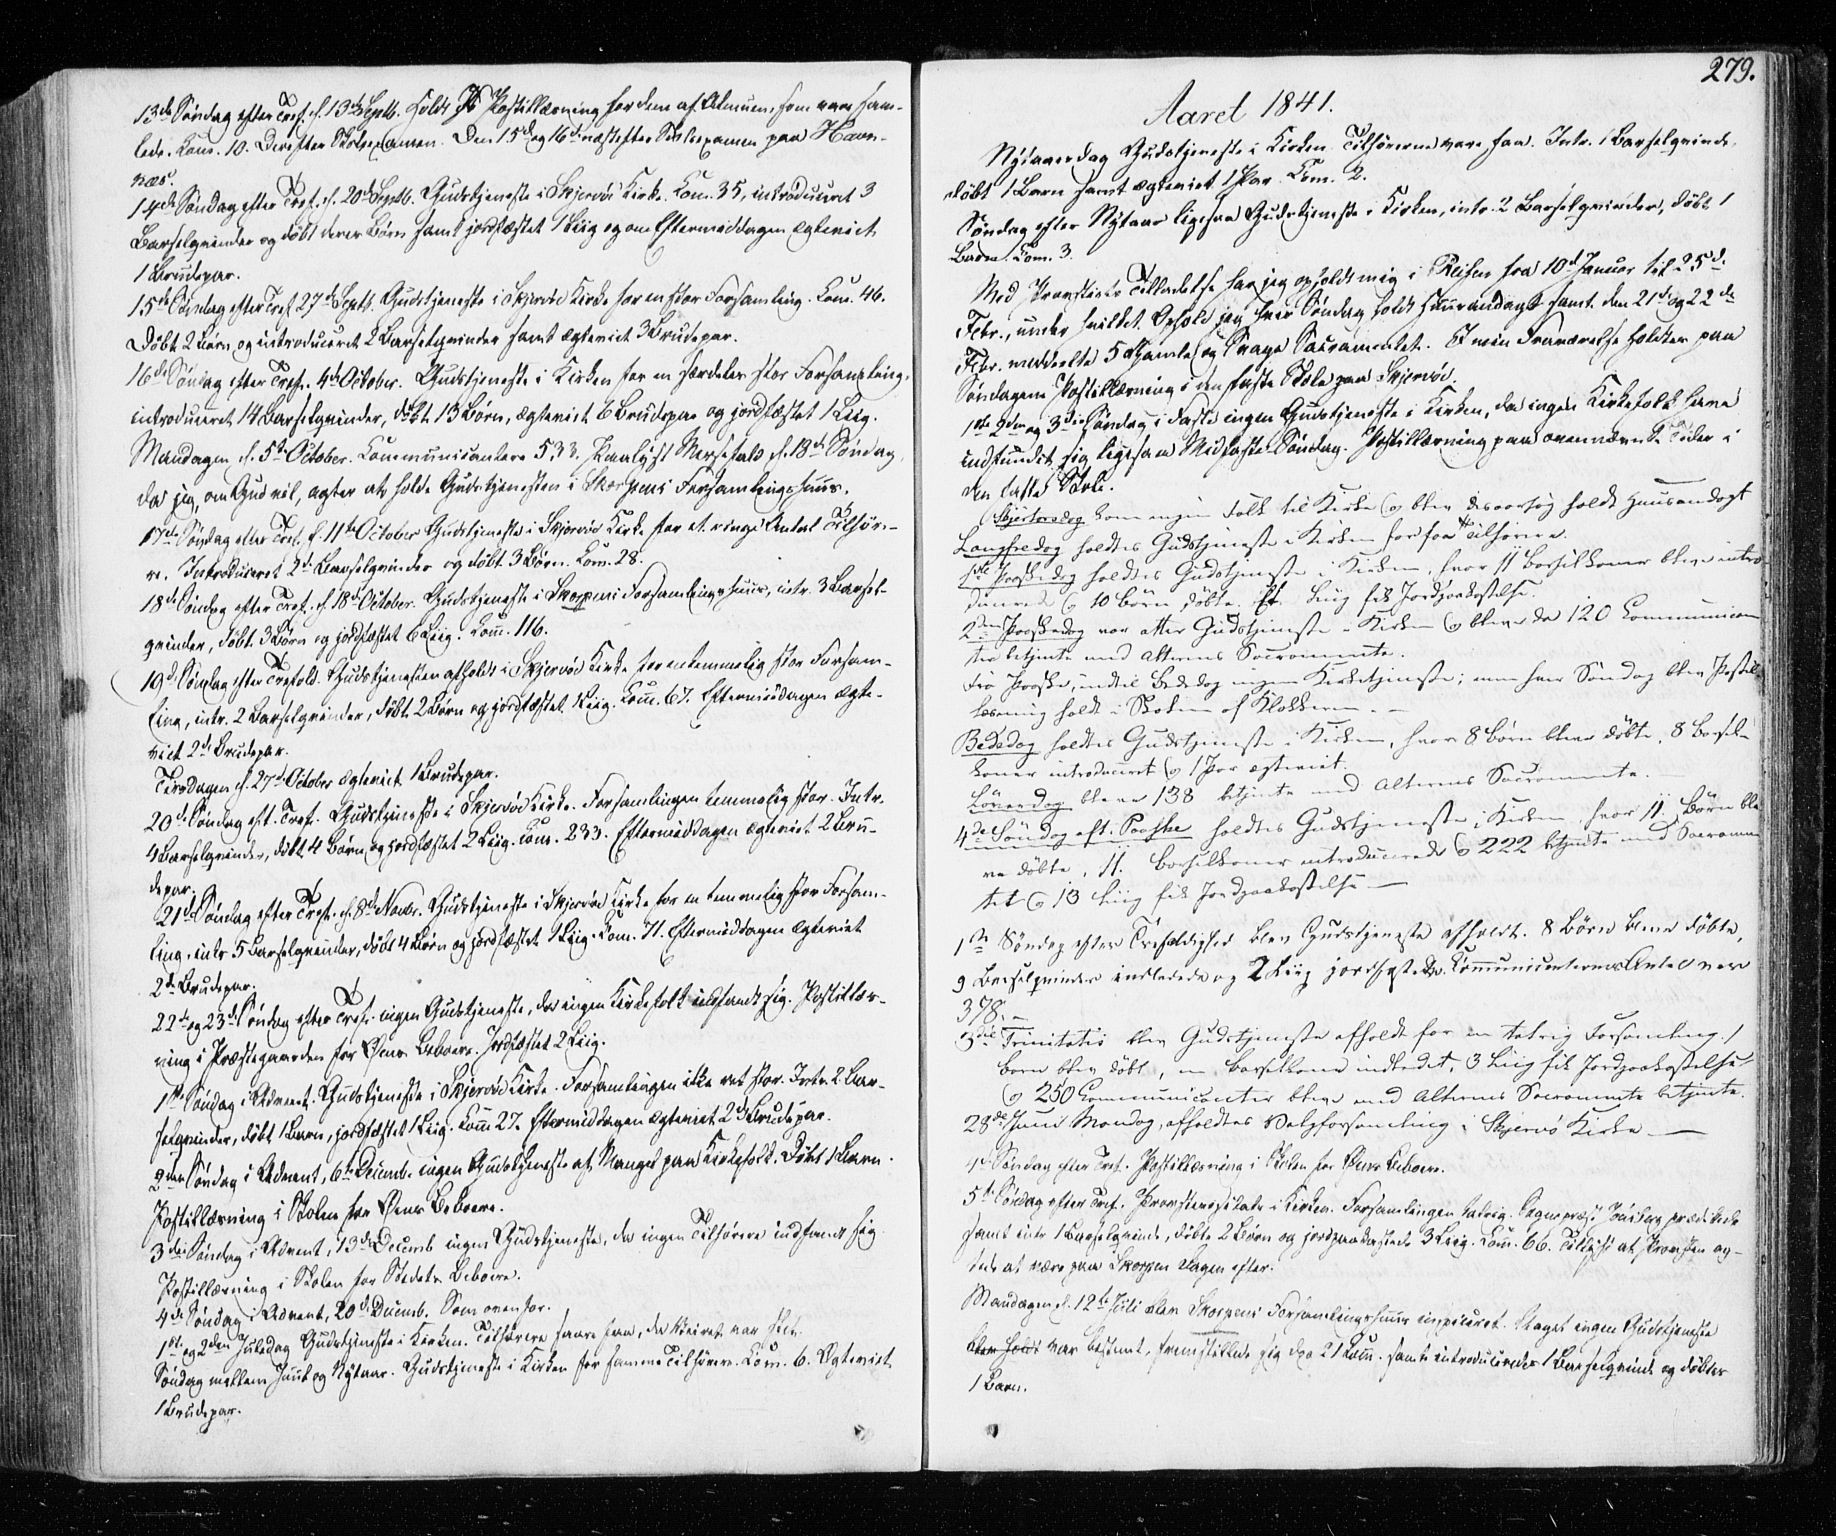 13de Søndag efter Tref. d. 13de Septb. holdt Postillæsning for dem af Almuen, som vare sam-
lede. Kom. 10. Derefter Skoleexamen. Den 15de og 16de næstefter Skoleexamen paa Havn-
næs.
14de Søndag efter Tref. d. 20de Septb. Gudstjeneste i Skjervø Kirke. Kom. 35, introduceret 3
Barselqvinder og døbt deres Børn samt jordfæstet 1 Liig og om Eftermiddagen ægteviet
1 Brudepar.
15de Søndag efter Tref. 27de Septb. Gudstjeneste i Skjervø Kirke for en stor Forsamling. Kom. 46.
Døbt 2 Børn og introduceret 2 Barselqvinder samt ægteviet 3 Brudepar.
16de Søndag efter Tref. 4de October. Gudstjeneste i Kirken for en særdeles stor Forsamling,
introduceret 14 Barselqvinder, døbt 13 Børn, ægteviet 6 Brudepar og jordfæstet 1 Liig.
Mandagen d. 5te October. Communicantere 533. Paalyst Messefald d. 18de Søndag,
da jeg, om Gud vil, agter at holde Gudstjenesten i Skorpens Forsamlingshuus.
17de Søndag efter Tref. d. 11te October Gudstjeneste i Skjervø Kirke for et ringe Antal Tilhøre-
re. Introduceret 2de Barselqvinder og døbt 3 Børn. Kom. 28.
18de Søndag efter Tref. d. 18de October. Gudstjeneste i Skorpens Forsamlingshuus, intr. 3 Barsel-
qvinder, døbt 3 Børn og jordfæstet 6 Liig. Kom. 116.
19de Søndag efter Trefold. Gudstjenesten afholdt i Skjervø Kirke for en temmelig stor Forsam-
ling, intr. 2 Barselqvinder, døbt 2 Børn og jordfæstet 1 Liig. Kom. 67. Eftermiddagen ægte-
viet 2de Brudepar.
Tirsdagen d. 27de October ægteviet 1 Brudepar.
20de Søndag eft. Tref. Gudstjeneste i Skjervø Kirke. Forsamlingen temmelig stor. Intr.
4 Barselqvinder, døbt 4 Børn og jordfæstet 2 Liig. Kom. 233. Eftermiddagen ægteviet 2 Bru-
depar.
21de Søndag efter Tref. d. 8de Novbr. Gudstjeneste i Skjervø Kirke for en temmelig stor Forsam-
ling, intr. 5 Barselqvinder, døbt 4 Børn og jordfæstet 1 Liig. Kom. 71. Eftermiddagen ægteviet
2de Brudepar.
22de og 23de Søndag efter Tref. ingen Gudstjeneste, da ingen Kirkefolk indfandt sig. Postillæs-
ning i Præstegaarden for Øens Beboere. Jordfæstet 2 Liig.
1ste Søndag i Advent. Gudstjeneste i Skjervø Kirke. Forsamlingen ikke ret stor. Intr. 2 Bar-
selqvinder, døbt 1 Barn, jordfæstet 1 Liig. Kom 27. Eftermiddagen ægteviet 2de Brudepar.
2den Søndag i Advent, 6te Decemb. ingen Gudstjeneste af Mangel paa Kirkefolk. Døbt 1 Barn.
Postillæsning i Skolen for Øens Beboere.
3die Søndag i Advent, 13de Decemb ingen Gudstjeneste, da ingen Tilhørere indfandt sig.
Postillæsning i Skolen for Stedets Beboere.
4de Søndag i Advent, 20de Decemb. Som ovenfor.
1ste og 2den Juledag Gudstjeneste i Kirken. Tilhørere saare faa, da Veiret var slet.
Søndag mellem Juul og Nytaar. Gudstjeneste i Kirken for samme Tilhørere. Kom. 6. Ægteviet
1 Brudepar.
279.
Aaret 1841.
Nytaarsdag Gudstjeneste i Kirken. Tilhørerne vare faa. Intr. 1 Barselqvinde,
døbt 1 Barn samt ægteviet 1 Par. Kom. 2.
Søndag efter Nytaar ligesaa Gudstjeneste i Kirken, intr. 2 Barselqvinder, døbt 1
Barn. Kom. 3.
Med Provstiets Tilladelse har jeg opholdt mig i Reisen fra 10de Januar til 25de
Febr., under hvilket Ophold jeg hver Søndag holdt Huusandagt samt den 21de og 22de
Febr. meddeelte 5 Gamle og Svage Sacramentet. I min Fraværelse holdtes paa
Søndagene Postillæsning i den faste Skole paa Skjervø.
1ste 2den og 3die Søndag i Faste ingen Gudstjeneste i Kirken, da ingen Kirkefolk have
indfundet sig ligesaa Midfaste Søndag. Postillæsning paa ovennævnte Tider i
den faste Skole.
Skjertorsdag kom ingen Folk til Kirke og blev desaarsag holdt Huusandagt
Langfredag holdtes Gudstjeneste i Kirken for faa Tilhørere.
1ste Paaskedag holdtes Gudstjeneste i Kirken, hvor 11 Barselkoner bleve intro-
duceret og 10 Børn døbte. Et Liig fik Jordpaakastelse.
2den Paaskedag var atter Gudstjeneste i Kirken og bleve da 120 Communican-
ter betjente med Alterens Sacramente.
Fra Paaske, indtil Bededag ingen Kirketjeneste; men hver Søndag blev Postil-
læsning holdt i Skolen af Klokkeren. –
Bededag holdtes Gudstjeneste i Kirken, hvor 8 Børn bleve døbte, 8 Barsel-
koner introduceret og 1 Par ægteviet.
Løverdag bleve 138 betjente med Alterens Sacramente.
4de Søndag eft. Paaske holdtes Gudstjeneste i Kirken, hvor 11 Børn ble-
ve døbte, 11 Barselkoner introducerede og 222 betjente med Sacramen-
tet og 13 Liig fik Jordpaakastelse –
1ste Søndag efter Trefoldighed blev Gudstjeneste afholdt. 8 Børn bleve døbte,
9 Barselqvinder indledede og 2 Liig jordfæstede. Kommunicanternes Antal var
378. –
3die Trinitatis blev Gudstjeneste afholdt for en talrig Forsamling. 1
Barn blev døbt, en Barselkone indledet, 3 Liig fik Jordpaakastelse
og 250 Communicanter bleve med Alterens Sacramente betjente.
28de Juni Mandag, afholdtes Valgforsamling i Skjervø Kirke –
4de Søndag efter Tref. Postillæsning i Skolen for Øens Beboere.
5te Søndag efter Tref. Provstevisitats i Kirken. Forsamlingen talrig. Sognepræst prædikede
samt intr 1 Barselqvinde, døbte 2 Børn og jordpaakastede 3 Liig. Kom. 66. Tillyst at Provsten ag-
tede at være paa Skorpen Dagen efter.
Mandagen d. 12te Juli blev Skorpens Forsamlingshuus inspiceret. Skjøgt ingen Gudstjeneste
blev holdt var bestemt, fremstillede sig dog 21 Kom. samt introduceredes 1 Barselqvinde og døbtes
1 Barn.